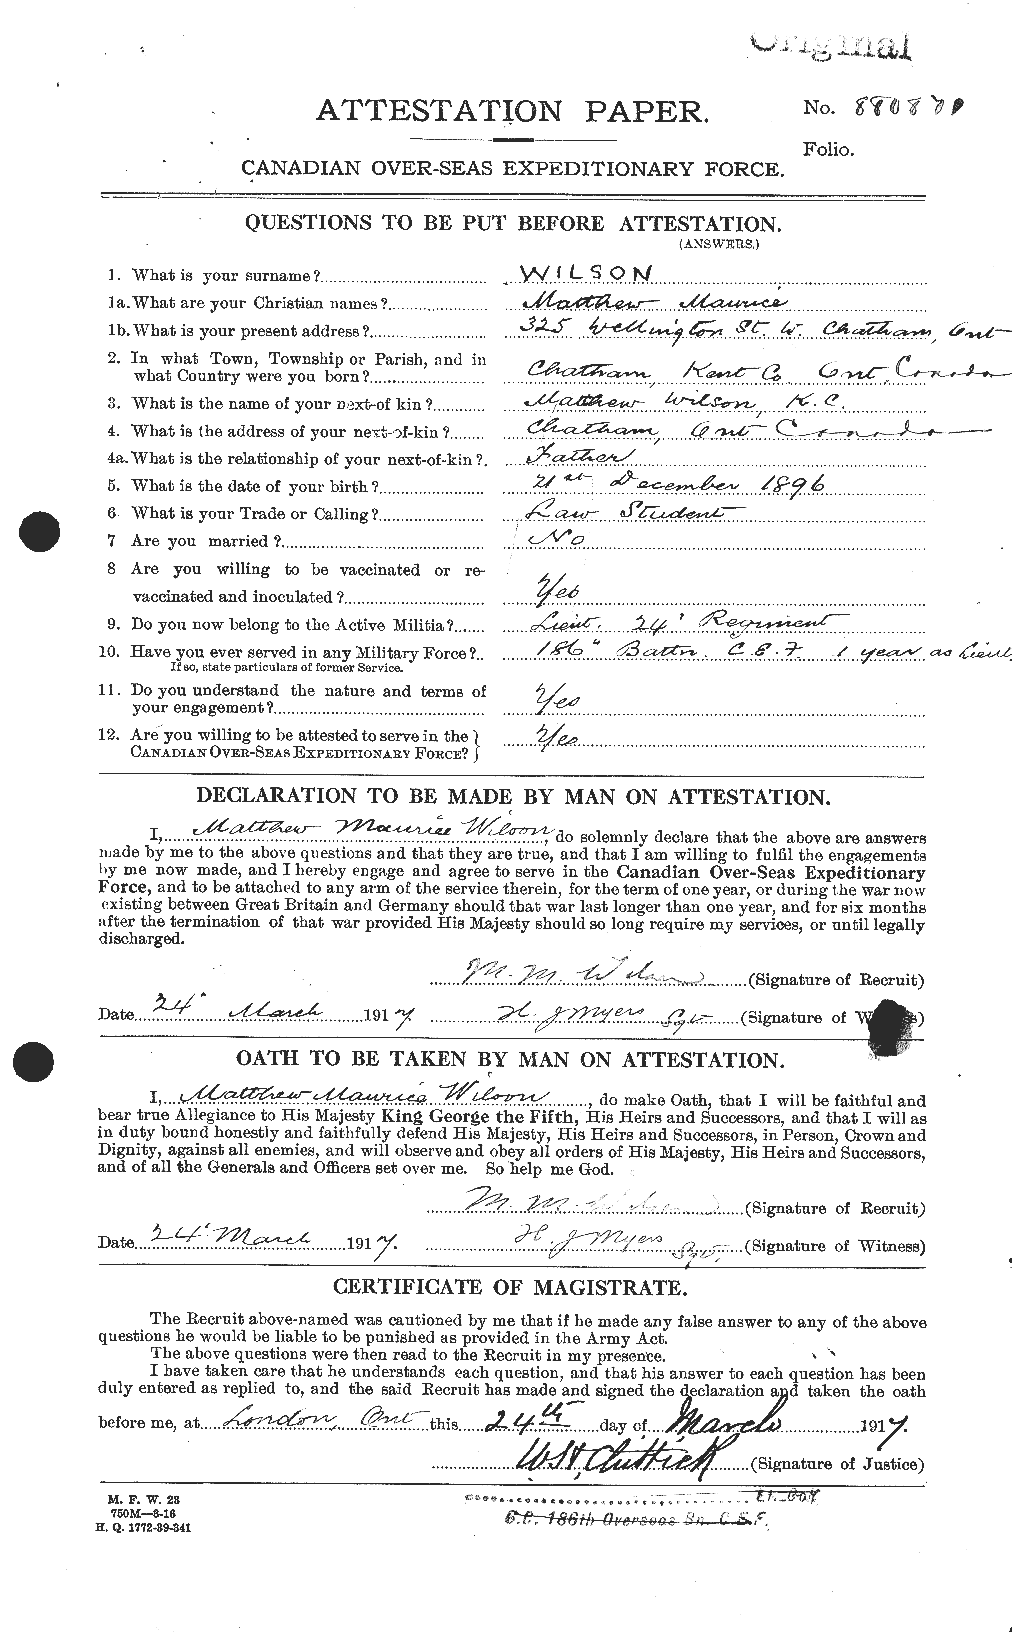 Original
ATTESTATION PAPER. No.
Folio.
CANADIAN OVER-SEAS EXPEDITIONARY FORCE.
QUESTIONS TO BE PUT BEFORE ATTESTATION.
(ANSWERS.)
1. What is your surname? WILSON
1a. What are your Christian names? Matthew Maurice
1b. What is your present address? 325 Wellington St. W. Chatham, Ont
2. In what Town, Township or Parish, and in
what Country were you born? Chatham, Kent Co Ont, Canada
3. What is the name of your next-of kin? Matthew Wilson, K.C.
4. What is the address of your next-of-kin? Chatham, Ont Canada
4a. What is the relationship of your next-of-kin? Father
5. What is the date of your birth? 21st December 1896
6. What is your Trade or Calling? Law Student
7 Are you married? No
8 Are you willing to be vaccinated or re-
vaccinated and inoculated? Yes
9. Do you now belong to the Active Militia? Lieut. 24' Regiment
10. Have you ever served in any Military Force? 186" Battn. C.E.F. 1 year as Lieut.
If so, state particulars of former Service.
11. Do you understand the nature and terms of
your engagement? Yes
12. Are you willing to be attested to serve in the
CANADIAN OVER-SEAS EXPEDITIONARY FORCE? Yes
DECLARATION TO BE MADE BY MAN ON ATTESTATION.
I, Matthew Maurice Wilson, do solemnly declare that the above are answers
made by me to the above questions and that they are true, and that I am willing to fulfil the engagements
by me now made, and I hereby engage and agree to serve in the Canadian Over-Seas Expeditionary
Force, and to be attached to any arm of the service therein, for the term of one year, or during the war now
existing between Great Britain and Germany should that war last longer than one year, and for six months
after the termination of that war provided His Majesty should so long require my services, or until legally
discharged.
M. M. Wilson (Signature of Recruit)
Date 24' March 1917 H. J Myers Sgt (Signature of Witness)
OATH TO BE TAKEN BY MAN ON ATTESTATION.
I, Matthew Maurice Wilson, do make Oath, that I will be faithful and
bear true Allegiance to His Majesty King George the Fifth, His Heirs and Successors, and that I will as
in duty bound honestly and faithfully defend His Majesty, His Heirs and Successors, in Person, Crown and
Dignity, against all enemies, and will observe and obey all orders of His Majesty, His Heirs and Successors,
and of all the Generals and Officers set over me. So help me God.
M. M. Wilson (Signature of Recruit)
Date 24' March 1917. H. J Myers Sgt. (Signature of Witness)
CERTIFICATE OF MAGISTRATE.
The Recruit above-named was cautioned by me that if he made any false answer to any of the above
questions he would be liable to be punished as provided in the Army Act.
The above questions were then read to the Recruit in my presence.
I have taken care that he understands each question, and that his answer to each question has been
duly entered as replied to, and the said Recruit has made and signed the declaration and taken the oath
before me, at London, Ont this 24th day of March 1917.
(Signature of Justice)
M. F. W. 23
750M—8-16
H. Q. 1772-39-341
Lt.-Col
C.C. 186th Overseas Bn. C.E.F.